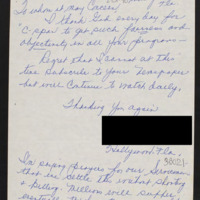 To whom it May Concern, Fla.
I thank God every day for
C-span to get such fairness and
objectivity in all your programs—
Regret that I cannot at this
time Subscribe to your Newspaper
but will Continue to Watch daily,
Thanking You again
Hollywood Fla.
33021
I'm saying prayers for our Servicemen
that we Settle this without Shooting
& Killing. Millions will Suffer